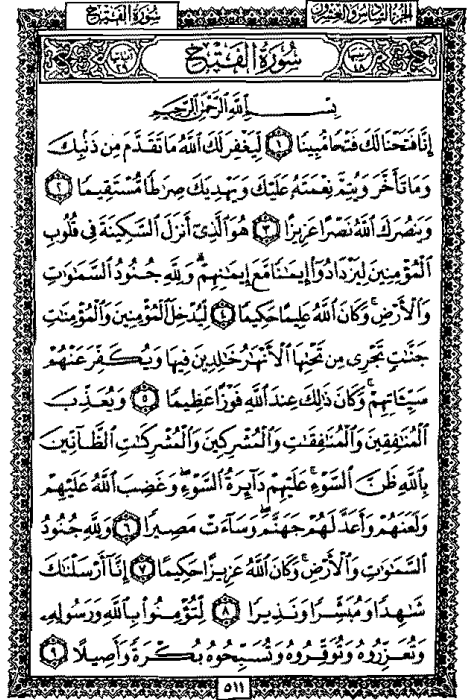 الجزء السادس والعشرون
سورة الفتح
سورة الفتح
بِسْمِ اللَّهِ الرَّحْمَٰنِ الرَّحِيمِ
إِنَّا فَتَحْنَا لَكَ فَتْحًا مُّبِينًا ١ لِّيَغْفِرَ لَكَ اللَّهُ مَا تَقَدَّمَ مِن ذَنۢبِكَ
وَمَا تَأَخَّرَ وَيُتِمَّ نِعْمَتَهُ عَلَيْكَ وَيَهْدِيَكَ صِرَاطًا مُّسْتَقِيمًا ٢
وَيَنصُرَكَ اللَّهُ نَصْرًا عَزِيزًا ٣ هُوَ الَّذِي أَنزَلَ السَّكِينَةَ فِي قُلُوبِ
الْمُؤْمِنِينَ لِيَزْدَادُوا إِيمَٰنًا مَّعَ إِيمَٰنِهِمْ ۗ وَلِلَّهِ جُنُودُ السَّمَٰوَٰتِ
وَالْأَرْضِ ۚ وَكَانَ اللَّهُ عَلِيمًا حَكِيمًا ٤ لِّيُدْخِلَ الْمُؤْمِنِينَ وَالْمُؤْمِنَٰتِ
جَنَّٰتٍ تَجْرِي مِن تَحْتِهَا الْأَنْهَٰرُ خَٰلِدِينَ فِيهَا وَيُكَفِّرَ عَنْهُمْ
سَيِّـَٔاتِهِمْ ۚ وَكَانَ ذَٰلِكَ عِندَ اللَّهِ فَوْزًا عَظِيمًا ٥ وَيُعَذِّبَ
الْمُنَٰفِقِينَ وَالْمُنَٰفِقَٰتِ وَالْمُشْرِكِينَ وَالْمُشْرِكَٰتِ الظَّآنِّينَ
بِاللَّهِ ظَنَّ السَّوْءِ ۚ عَلَيْهِمْ دَآئِرَةُ السَّوْءِ ۖ وَغَضِبَ اللَّهُ عَلَيْهِمْ
وَلَعَنَهُمْ وَأَعَدَّ لَهُمْ جَهَنَّمَ ۖ وَسَآءَتْ مَصِيرًا ٦ وَلِلَّهِ جُنُودُ
السَّمَٰوَٰتِ وَالْأَرْضِ ۚ وَكَانَ اللَّهُ عَزِيزًا حَكِيمًا ٧ إِنَّآ أَرْسَلْنَٰكَ
شَٰهِدًا وَمُبَشِّرًا وَنَذِيرًا ٨ لِّتُؤْمِنُوا بِاللَّهِ وَرَسُولِهِ
وَتُعَزِّرُوهُ وَتُوَقِّرُوهُ وَتُسَبِّحُوهُ بُكْرَةً وَأَصِيلًا ٩
٥١١